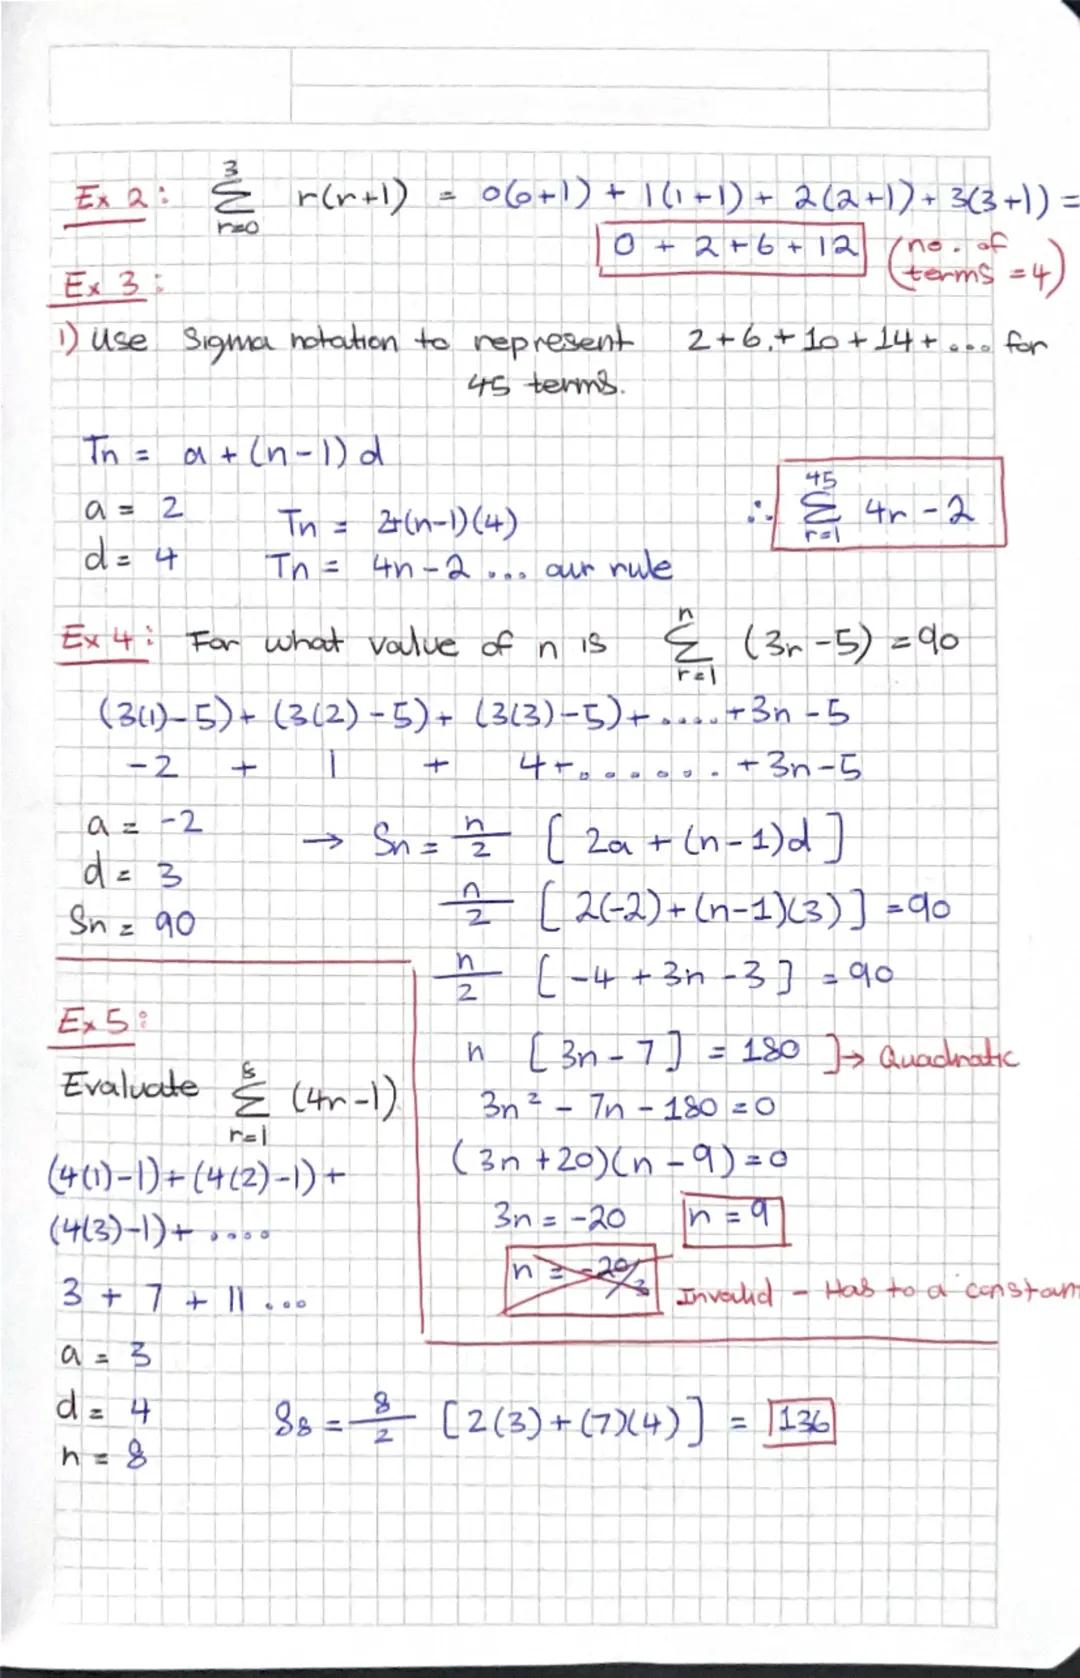 Ex 2: 3 Σ r=0 r(r+1) = 0(0+1) + 1(1+1) + 2(2+1) + 3(3+1) =
0 + 2 + 6 + 12 (no. of terms = 4)
Ex 3:
1) Use Sigma notation to represent 2+6+10+14+... for
45 terms.
Tn = a + (n-1) d
a = 2 Tn = 2+(n-1)(4)
d = 4 Tn = 4n - 2 ... our rule
∴ 45 Σ r=1 4r - 2
Ex 4: For what value of n is n Σ r=1 (3r-5) = 90
(3(1)-5) + (3(2)-5) + (3(3)-5) + ..... + 3n - 5
-2 + 1 + 4 + ...... + 3n-5
a = -2
d = 3
Sn = 90
→ Sn = n/2 [ 2a + (n-1)d ]
n/2 [ 2(-2) + (n-1)(3) ] = 90
n/2 [ -4 + 3n - 3 ] = 90
n [ 3n - 7 ] = 180 ]→ Quadratic
3n² - 7n - 180 = 0
(3n + 20)(n - 9) = 0
3n = -20 n = 9
n = -20/3 Invalid - Has to a constant
Ex 5:
Evaluate 8 Σ r=1 (4r-1)
(4(1)-1) + (4(2)-1) +
(4(3)-1) + ....
3 + 7 + 11 ...
a = 3
d = 4
n = 8
S8 = 8/2 [2(3) + (7)(4)] = 136